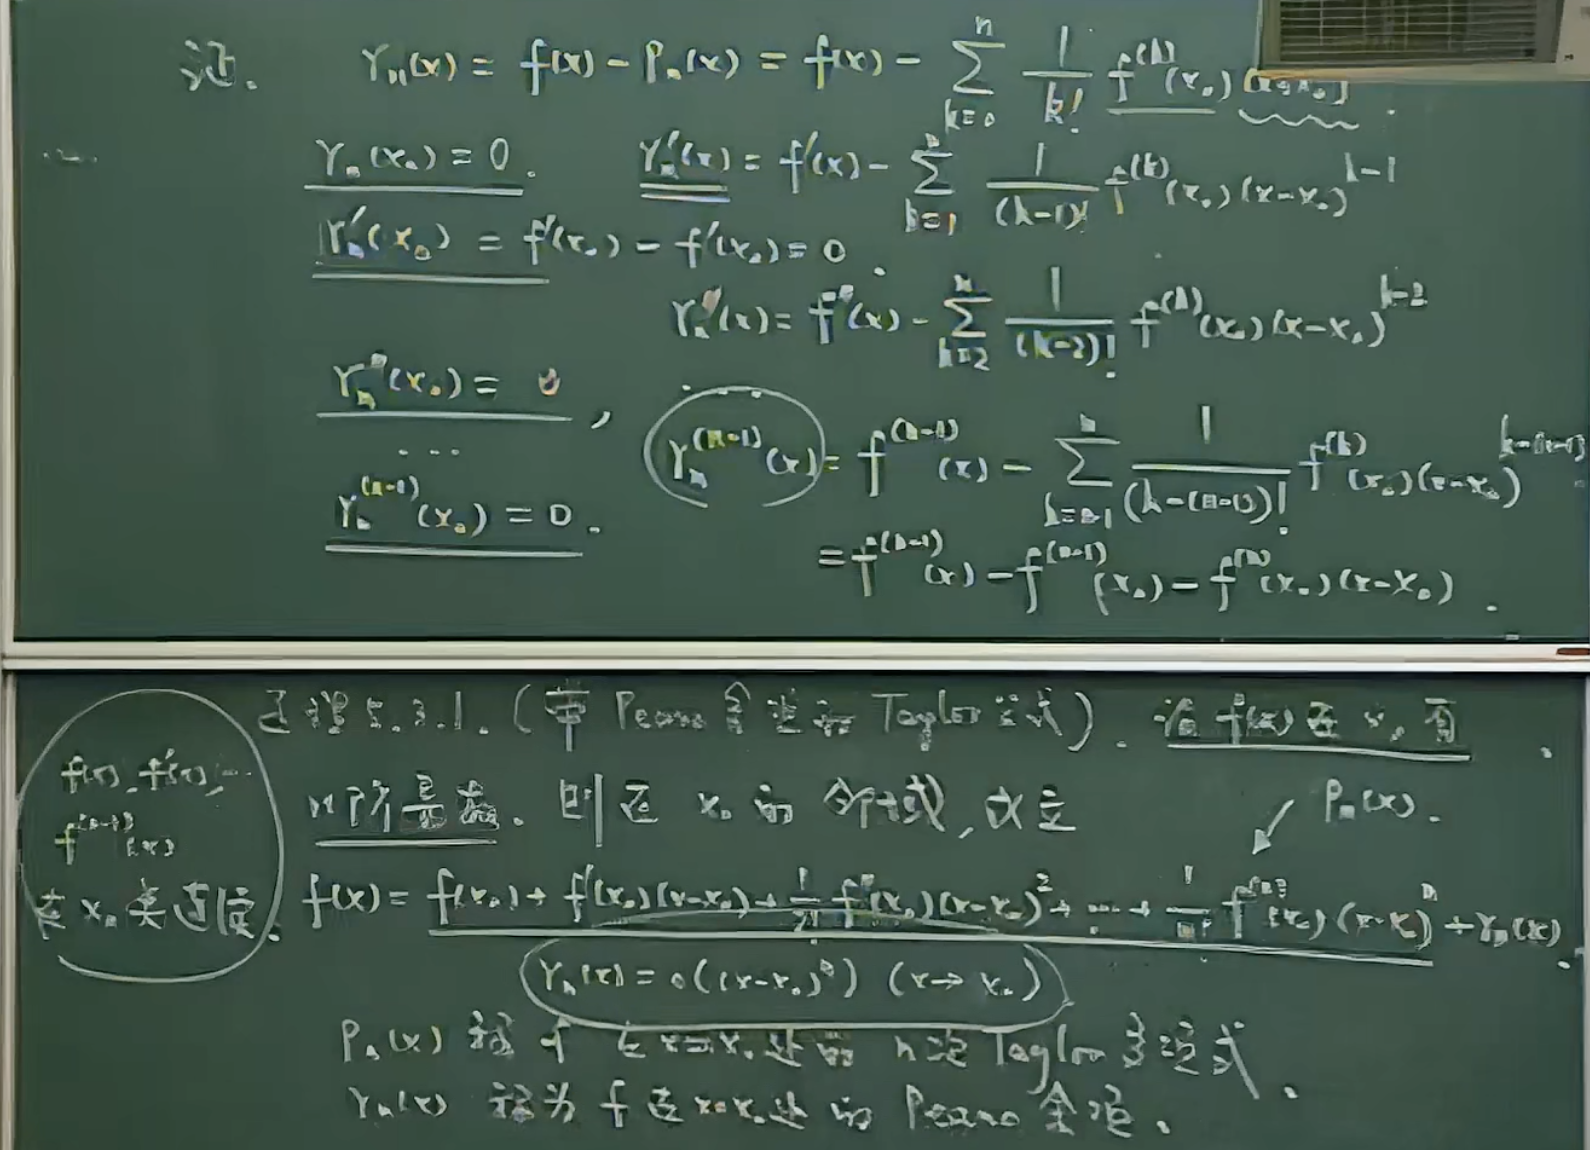 证. rₙ(x) = f(x) - Pₙ(x) = f(x) - ∑_{k=0}^{n} 1/k! f^{(k)}(x₀)
rₙ(x₀) = 0. rₙ'(x) = f'(x) - ∑_{k=1}^{n} 1/(k-1)! f^{(k)}(x₀)(x-x₀)^{k-1}
rₙ'(x₀) = f'(x₀) - f'(x₀) = 0.
rₙ''(x) = f''(x) - ∑_{k=2}^{n} 1/(k-2)! f^{(k)}(x₀)(x-x₀)^{k-2}
rₙ''(x₀) = 0,
...
rₙ^{(n-1)}(x) = f^{(n-1)}(x) - ∑_{k=n-1}^{n} 1/(k-(n-1))! f^{(k)}(x₀)(x-x₀)^{k-(n-1)}
rₙ^{(n-1)}(x₀) = 0.
= f^{(n-1)}(x) - f^{(n-1)}(x₀) - f^{(n)}(x₀)(x-x₀).
定理5.3.1. (带Peano余项的Taylor公式). 设f(x)在x₀有
n阶导数. 则在x₀的邻域, 成立
Pₙ(x).
f(x), f'(x), …
f^{(n-1)}(x)
在x₀连续.
f(x) = f(x₀) + f'(x₀)(x-x₀) + 1/2! f''(x₀)(x-x₀)² + … + 1/n! f^{(n)}(x₀)(x-x₀)ⁿ + rₙ(x).
rₙ(x) = o((x-x₀)ⁿ) (x→x₀)
Pₙ(x) 称 f 在x=x₀处的 n次Taylor多项式.
rₙ(x) 称为 f 在x=x₀处的 Peano余项.